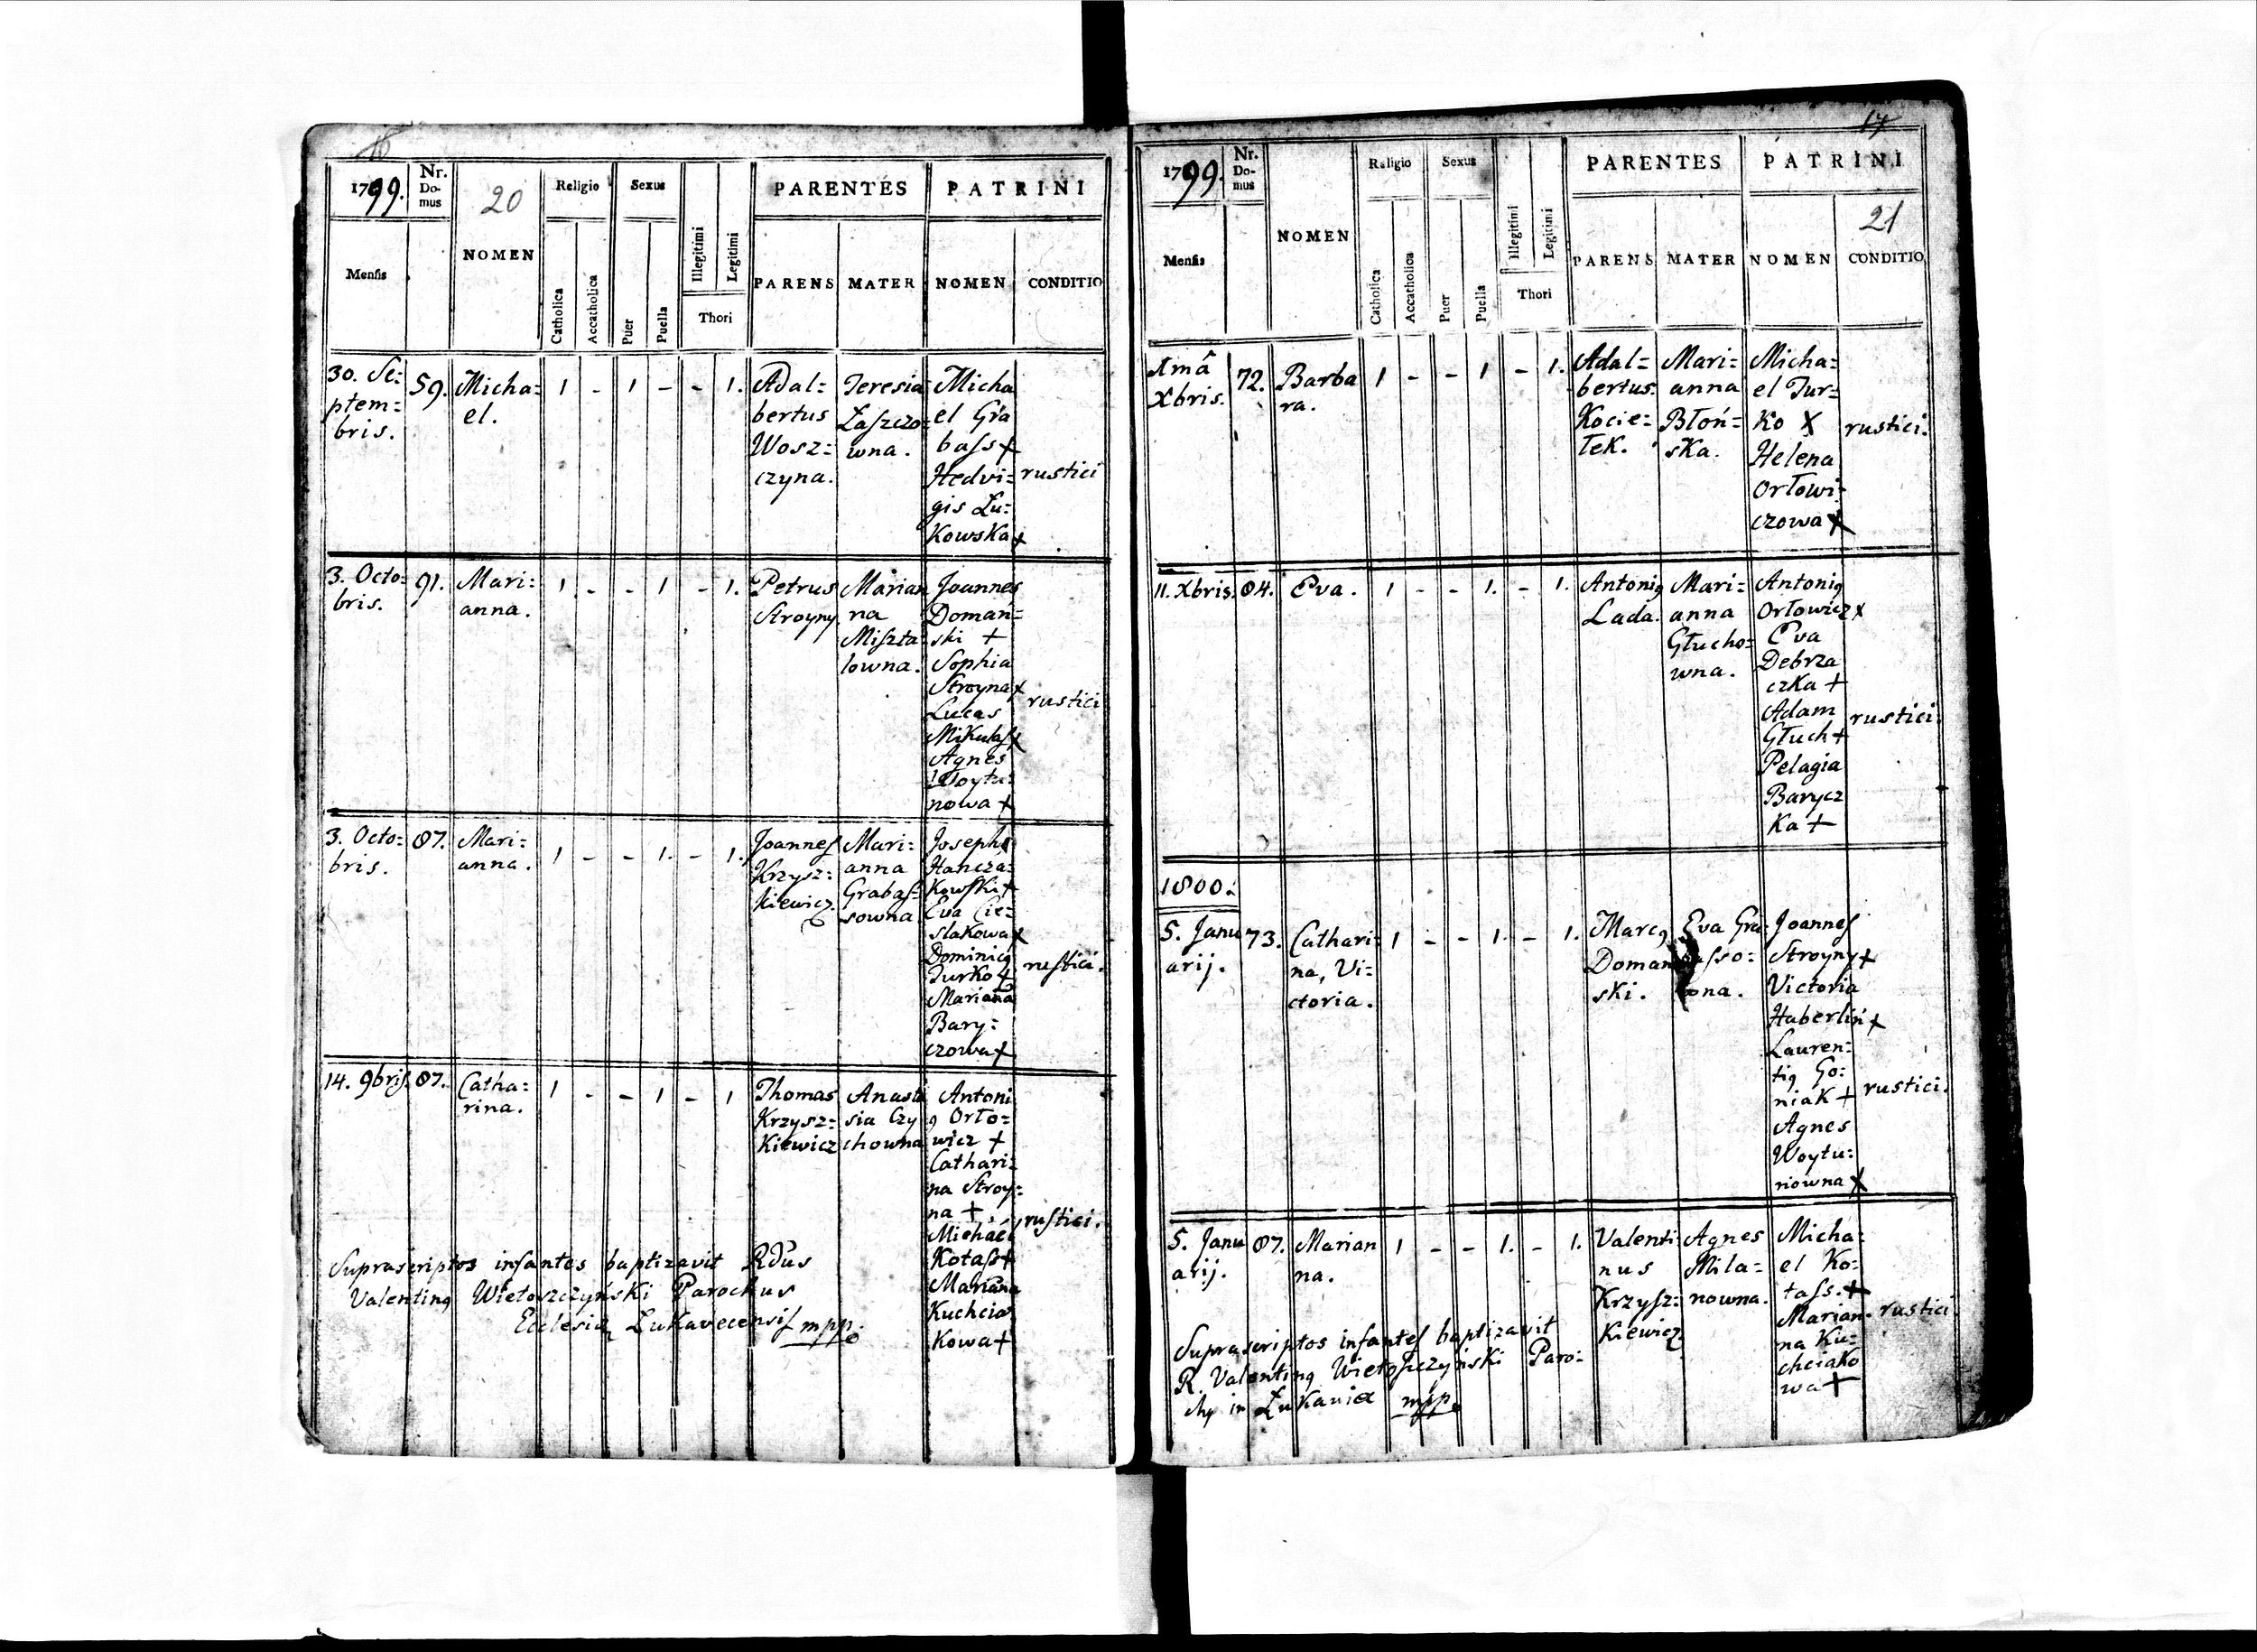 16
1799.
Nr.
Do-
mus
20
NOMEN
Religio
Sexus
Mensis
Catholica
Accatholica
Puer
Puella
Illegitimi
Legitimi
Thori
PARENTES
PATRINI
PARENS
MATER
NOMEN
CONDITIO
30. Se=
ptem=
bris.
59.
Micha=
el.
1 - 1 - - 1.
Adal=
bertus
Wosz=
czyna.
Teresia
Łaszczo=
wna.
Micha
el Gra
bass +
Hedvi=
gis Żu=
kowska +
rustici
3. Octo=
bris.
91.
Mari=
anna.
1 - - 1 - 1.
Petrus
Stroyny
Marian
na
Miszta
lowna.
Joannes
Doman=
ski +
Sophia
Stroyna +
Lucas
Mikulass +
Agnes
Woytu=
nowa +
rustici
3. Octo=
bris.
87.
Mari=
anna.
1 - - 1. - 1.
Joannes
Krzysz=
kiewicz
Mari=
anna
Grabas=
sowna
Josephus
Hancza=
kowski +
Eva Cie=
slakowa +
Dominicus
Turko +
Mariana
Bary=
czowa +
rustici.
14. 9bris
87.
Catha=
rina.
1 - - 1 - 1
Thomas
Krzysz=
kiewicz
Anasta
sia Czy
chowna
Antoni
9 Orło=
wicz +
Cathari=
na Stroy=
na +
Michael
Kotass +
Mariana
Kuchcia
kowa +
rustici.
Suprascriptos infantes baptizavit Rdus
Valentin9 Wietoszczyński Parochus
Ecclesiæ Łukavecensis mpp.
17
1799.
Nr.
Do-
mus
NOMEN
Religio
Sexus
Mensis
Catholica
Accatholica
Puer
Puella
Illegitimi
Legitimi
Thori
PARENTES
PATRINI
21
PARENS
MATER
NOMEN
CONDITIO
1mâ
Xbris.
72.
Barba
ra.
1 - - 1 - 1.
Adal=
bertus
Kocie=
łek.
Mari=
anna
Błoń=
ska.
Micha=
el Tur=
ko X
Helena
Orłowi=
czowa X
rustici.
11. Xbris.
84.
Eva.
1 - - 1. - 1.
Antoni9
Lada.
Mari=
anna
Głucho=
wna.
Antoni9
Orłowicz x
Eva
Debrza
czka +
Adam
Głuch +
Pelagia
Barycz
ka +
rustici.
1800.
5. Janu
arij.
73.
Cathari=
na, Vi=
ctoria.
1 - - 1. - 1.
Marc9
Doman
ski.
Eva Gra=
sso=
wna.
Joannes
Stroyny +
Victoria
Haberlin +
Lauren=
ti9 Go=
niak +
Agnes
Woytu=
niowna X
rustici.
5. Janu
arij.
87.
Marian
na.
1 - - 1. - 1.
Valenti
nus
Krzysz=
kiewicz
Agnes
Mila=
nowna.
Micha=
el Ko=
tass. +
Marian=
na Ku=
chciako
wa +
rustici
Suprascriptos infantes baptizavit
R. Valentin9 Wietoszczyński Paro=
ch9 in Łukawiec mpp.